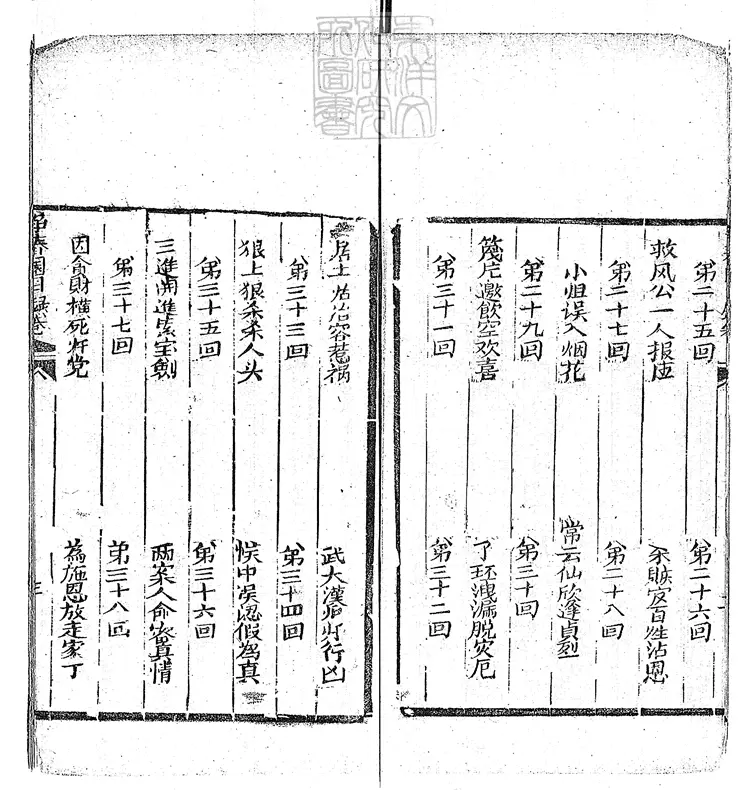 第二十五回
第二十六回
救风公一人报
百姓沾恩
第二十七回
第二十八回
小姐误入烟花
常云仙欣逢貞烈
第二十九回
第三十回
篾片邀飲空欢喜
了环洩漏脱灾厄
第三十一回
第三十二回
居士 治容惹祸
武大漢 行凶
第三十三回
第三十四回
狠上狠杀杀人头
悮中 假為真
第三十五回
第三十六回
三進 宝劍
两案人命 真情
第三十七回
第三十八回
因貪財橫死奸党
為施恩放走家丁
目錄 卷
三
東洋文
化研究
所圖書